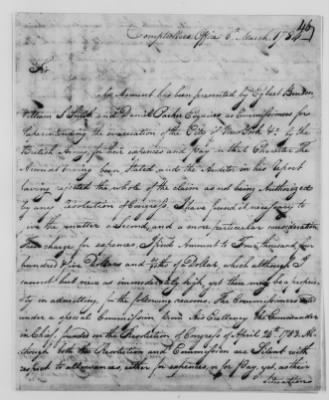 46
Comptrollers Office 6th March 178
Sir
An Account has been presented by Egbert Benson
William S. Smith and Daniel Parker Esquires as Commissioners for
Superintending the evacuation of the City of New York &c. by the
British Army for their expences and Pay in that Character the
Account having been stated, and the Auditor in his report
having rejected the whole of the claim as not being Authorized
by any resolution of Congress. I have found it necessary to
give the matter a second, and a more particular consideration
Their charge for expences I find Amount to Four thousand four
hundred & five Dollars and of a Dollar, which although I
cannot but view as immoderately high, yet there may be a proprie-
ty in admitting, for the following reasons. The Commissioners acted
under a special Commission from His Excellency the Commander
in Chief, founded on the Resolution of Congress of April 1783. Al-
though both the Resolution and Commission are Silent with
respect to allowances, either for expences, or for Pay, yet, as their
situation